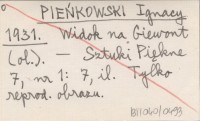 PIEŃKOWSKI Ignacy
1931. Widok na Giewont
(ol.). — Sztuki Piękne
7, nr 1: 7, il. Tylko
reprod. obrazu.